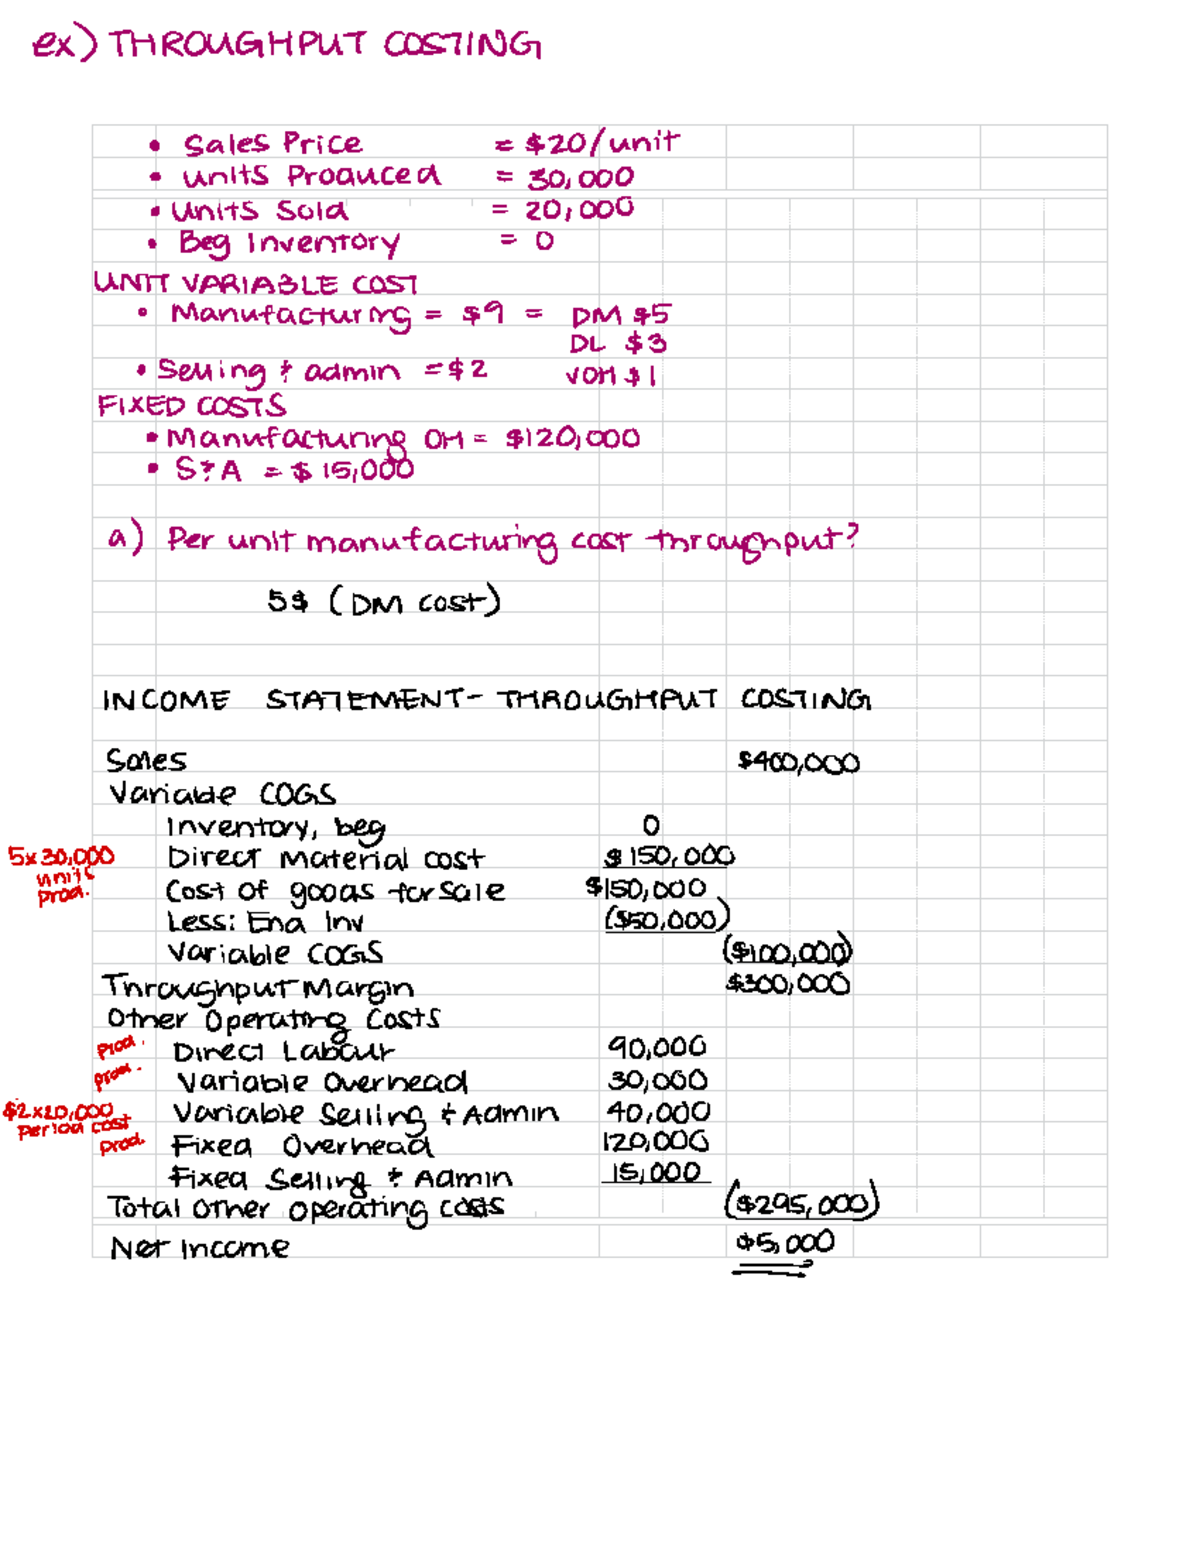 ex) THROUGHPUT COSTING
• Sales Price = $20/unit
• Units Produced = 30,000
• Units Sold = 20,000
• Beg Inventory = 0
UNIT VARIABLE COST
• Manufacturing = $9 = DM $5
DL $3
• Selling & admin = $2 VOH $1
FIXED COSTS
• Manufacturing OH = $120,000
• S&A = $15,000
a) Per unit manufacturing cost throughput?
5$ (DM cost)
INCOME STATEMENT- THROUGHPUT COSTING
Sales $400,000
Variable COGS
Inventory, beg 0
5x30,000 units prod. Direct material cost $150,000
Cost of goods for sale $150,000
Less: End Inv ($50,000)
Variable COGS ($100,000)
Throughput Margin $300,000
Other Operating Costs
Prod. Direct Labour 90,000
prod. Variable Overhead 30,000
$2x20,000 period cost Variable Selling & Admin 40,000
prod. Fixed Overhead 120,000
Fixed Selling & Admin 15,000
Total other operating costs ($295,000)
Net Income $5,000